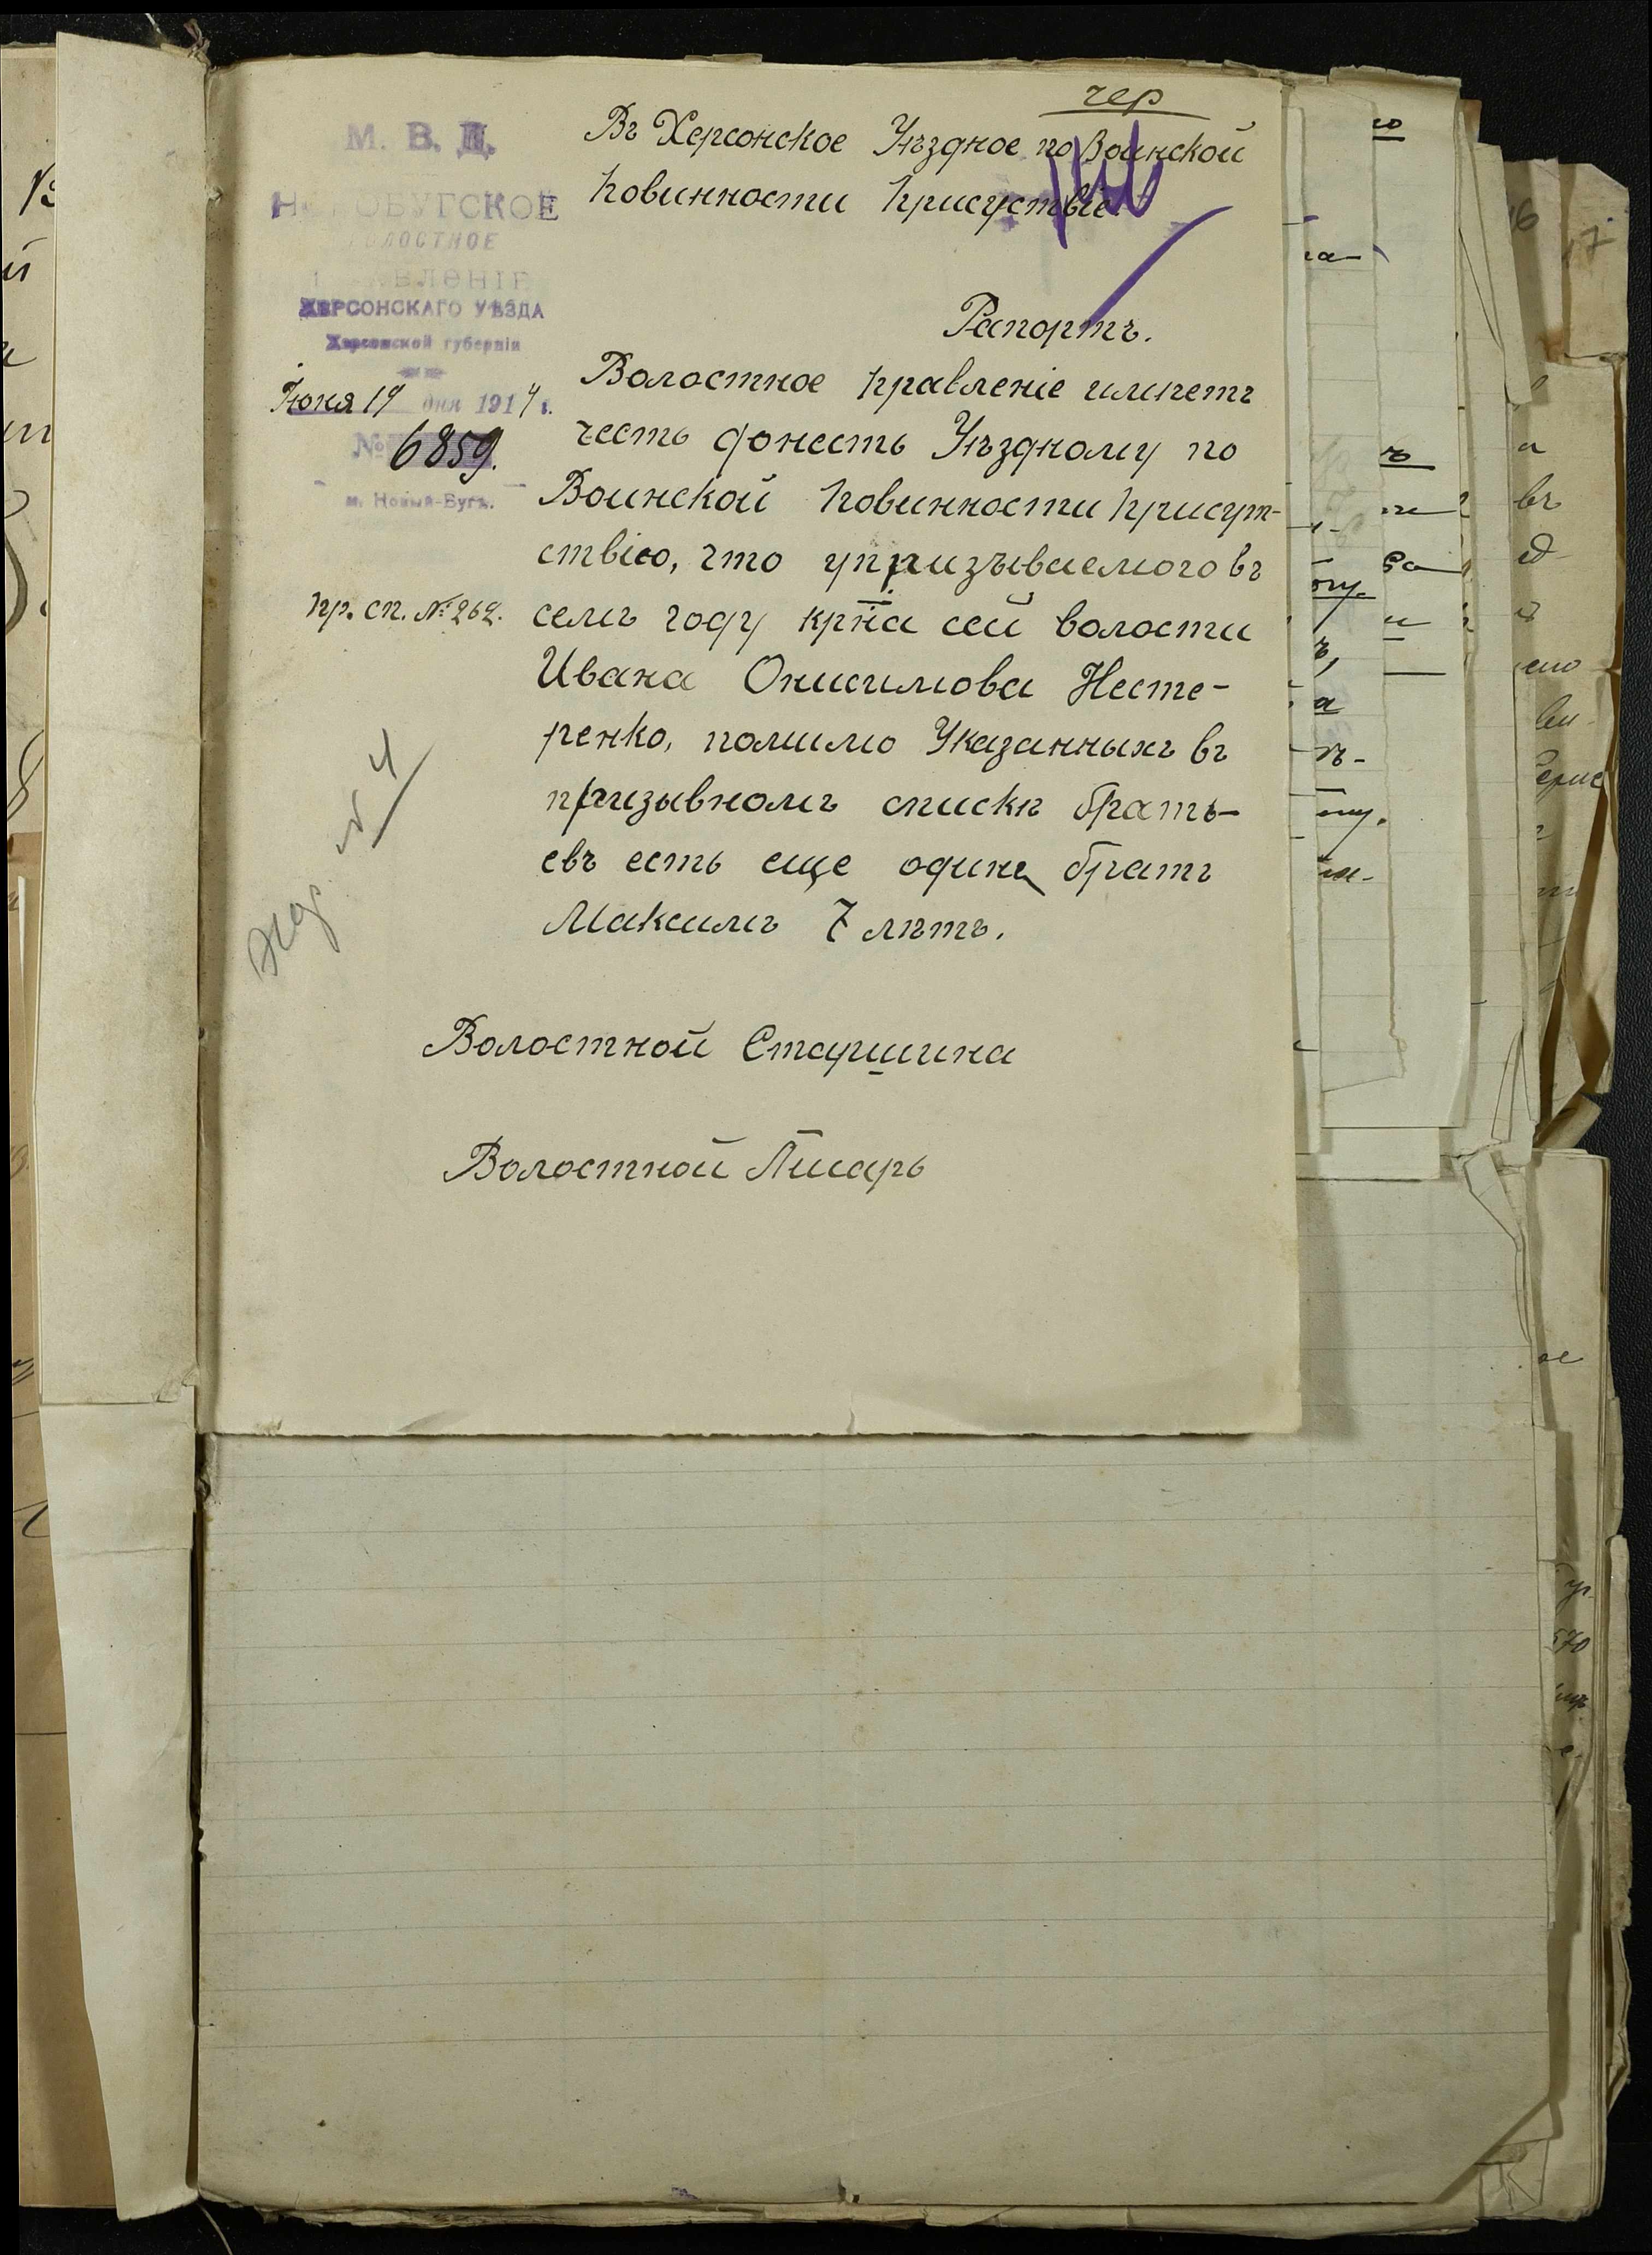 чер
М. В. Д.
НОВОБУГСКОЕ
ВОЛОСТНОЕ
ПРАВЛЕНІЕ
ХЕРСОНСКАГО УѢЗДА
Херсонской губерніи
Іюня 19 дня 1914 г.
№ 6859.
м. Новый-Бугъ.
Въ Херсонское Уѣздное по Воинской
повинности присуствіе
Рапортъ.
Волостное правленіе имѣетъ
честь донесть Уѣздному по
Воинской повинности присут-
ствію, что у призываемого въ
семъ году кр-на сей волости
Ивана Онисимова Несте-
ренко, помимо указанныхъ въ
призывномъ списки брать-
евъ есть еще одинъ братъ
Максимъ 7 лѣтъ.
пр. сп. № 262.
№ 4
Волостной Старшина
Волостной Писарь